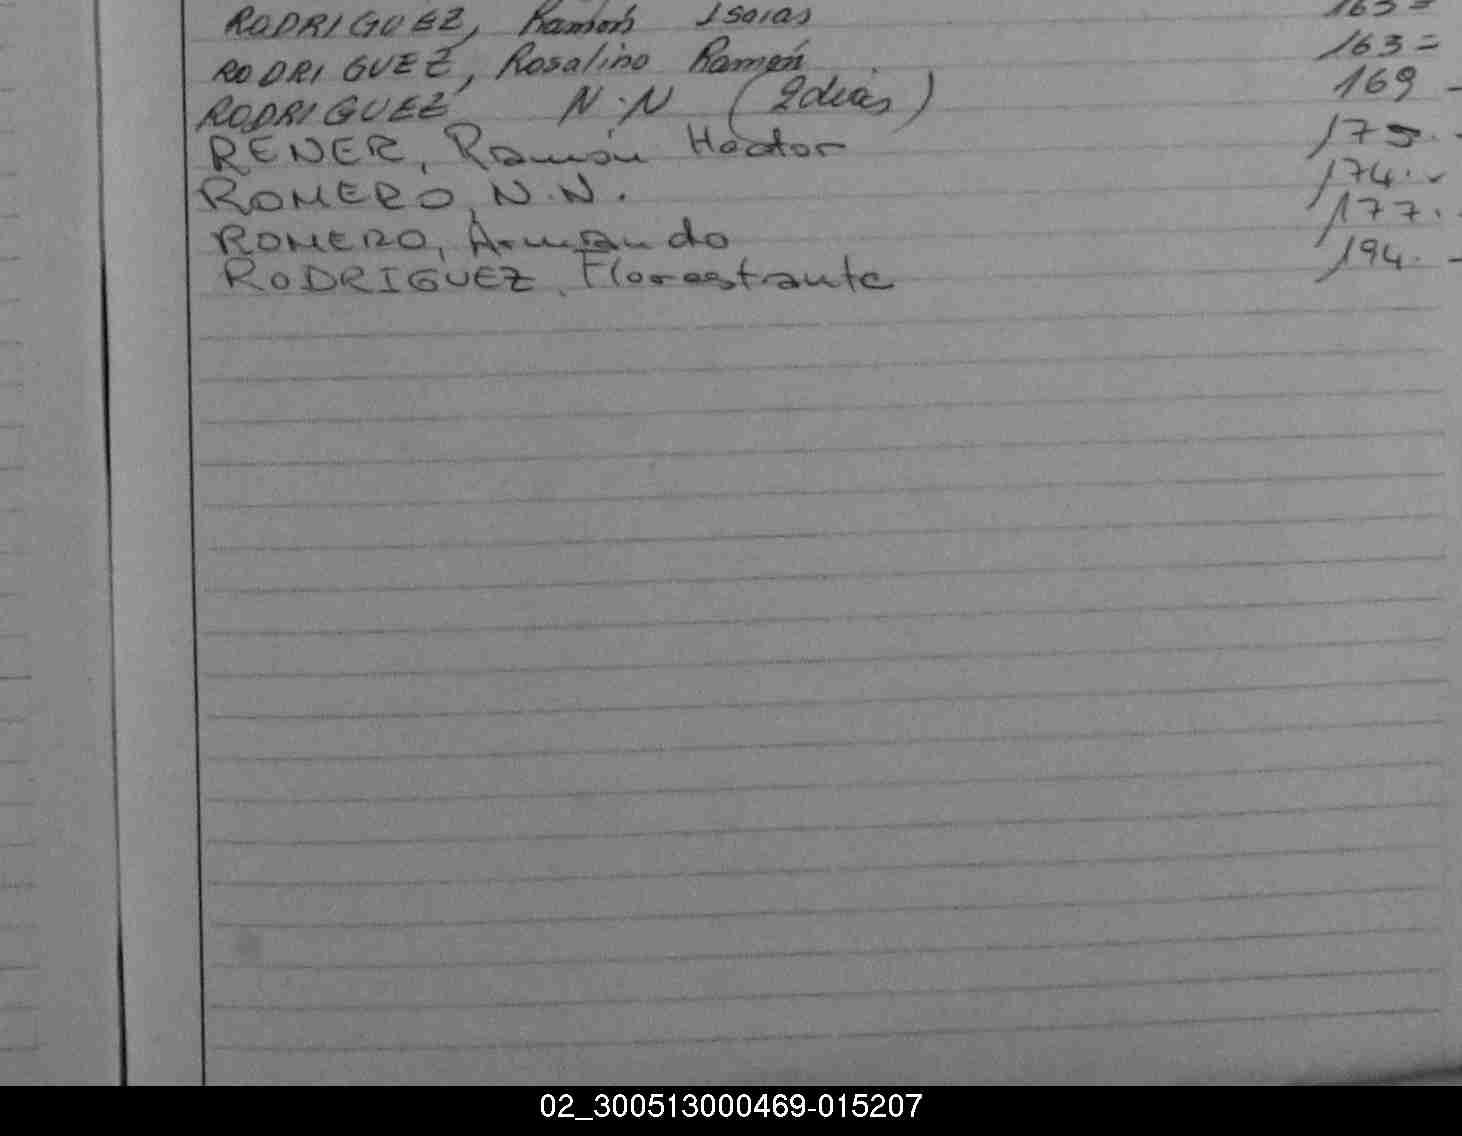 RODRIGUEZ, Ramón Isaias 163=
RODRIGUEZ, Rosalino Ramón 163=
RODRIGUEZ N.N (2 dias) 169 -
RENER, Ramón Hector 175.-
ROMERO, N.N. 174.-
ROMERO, Armando 177.-
RODRIGUEZ, Florestrante 194.-
02_300513000469-015207